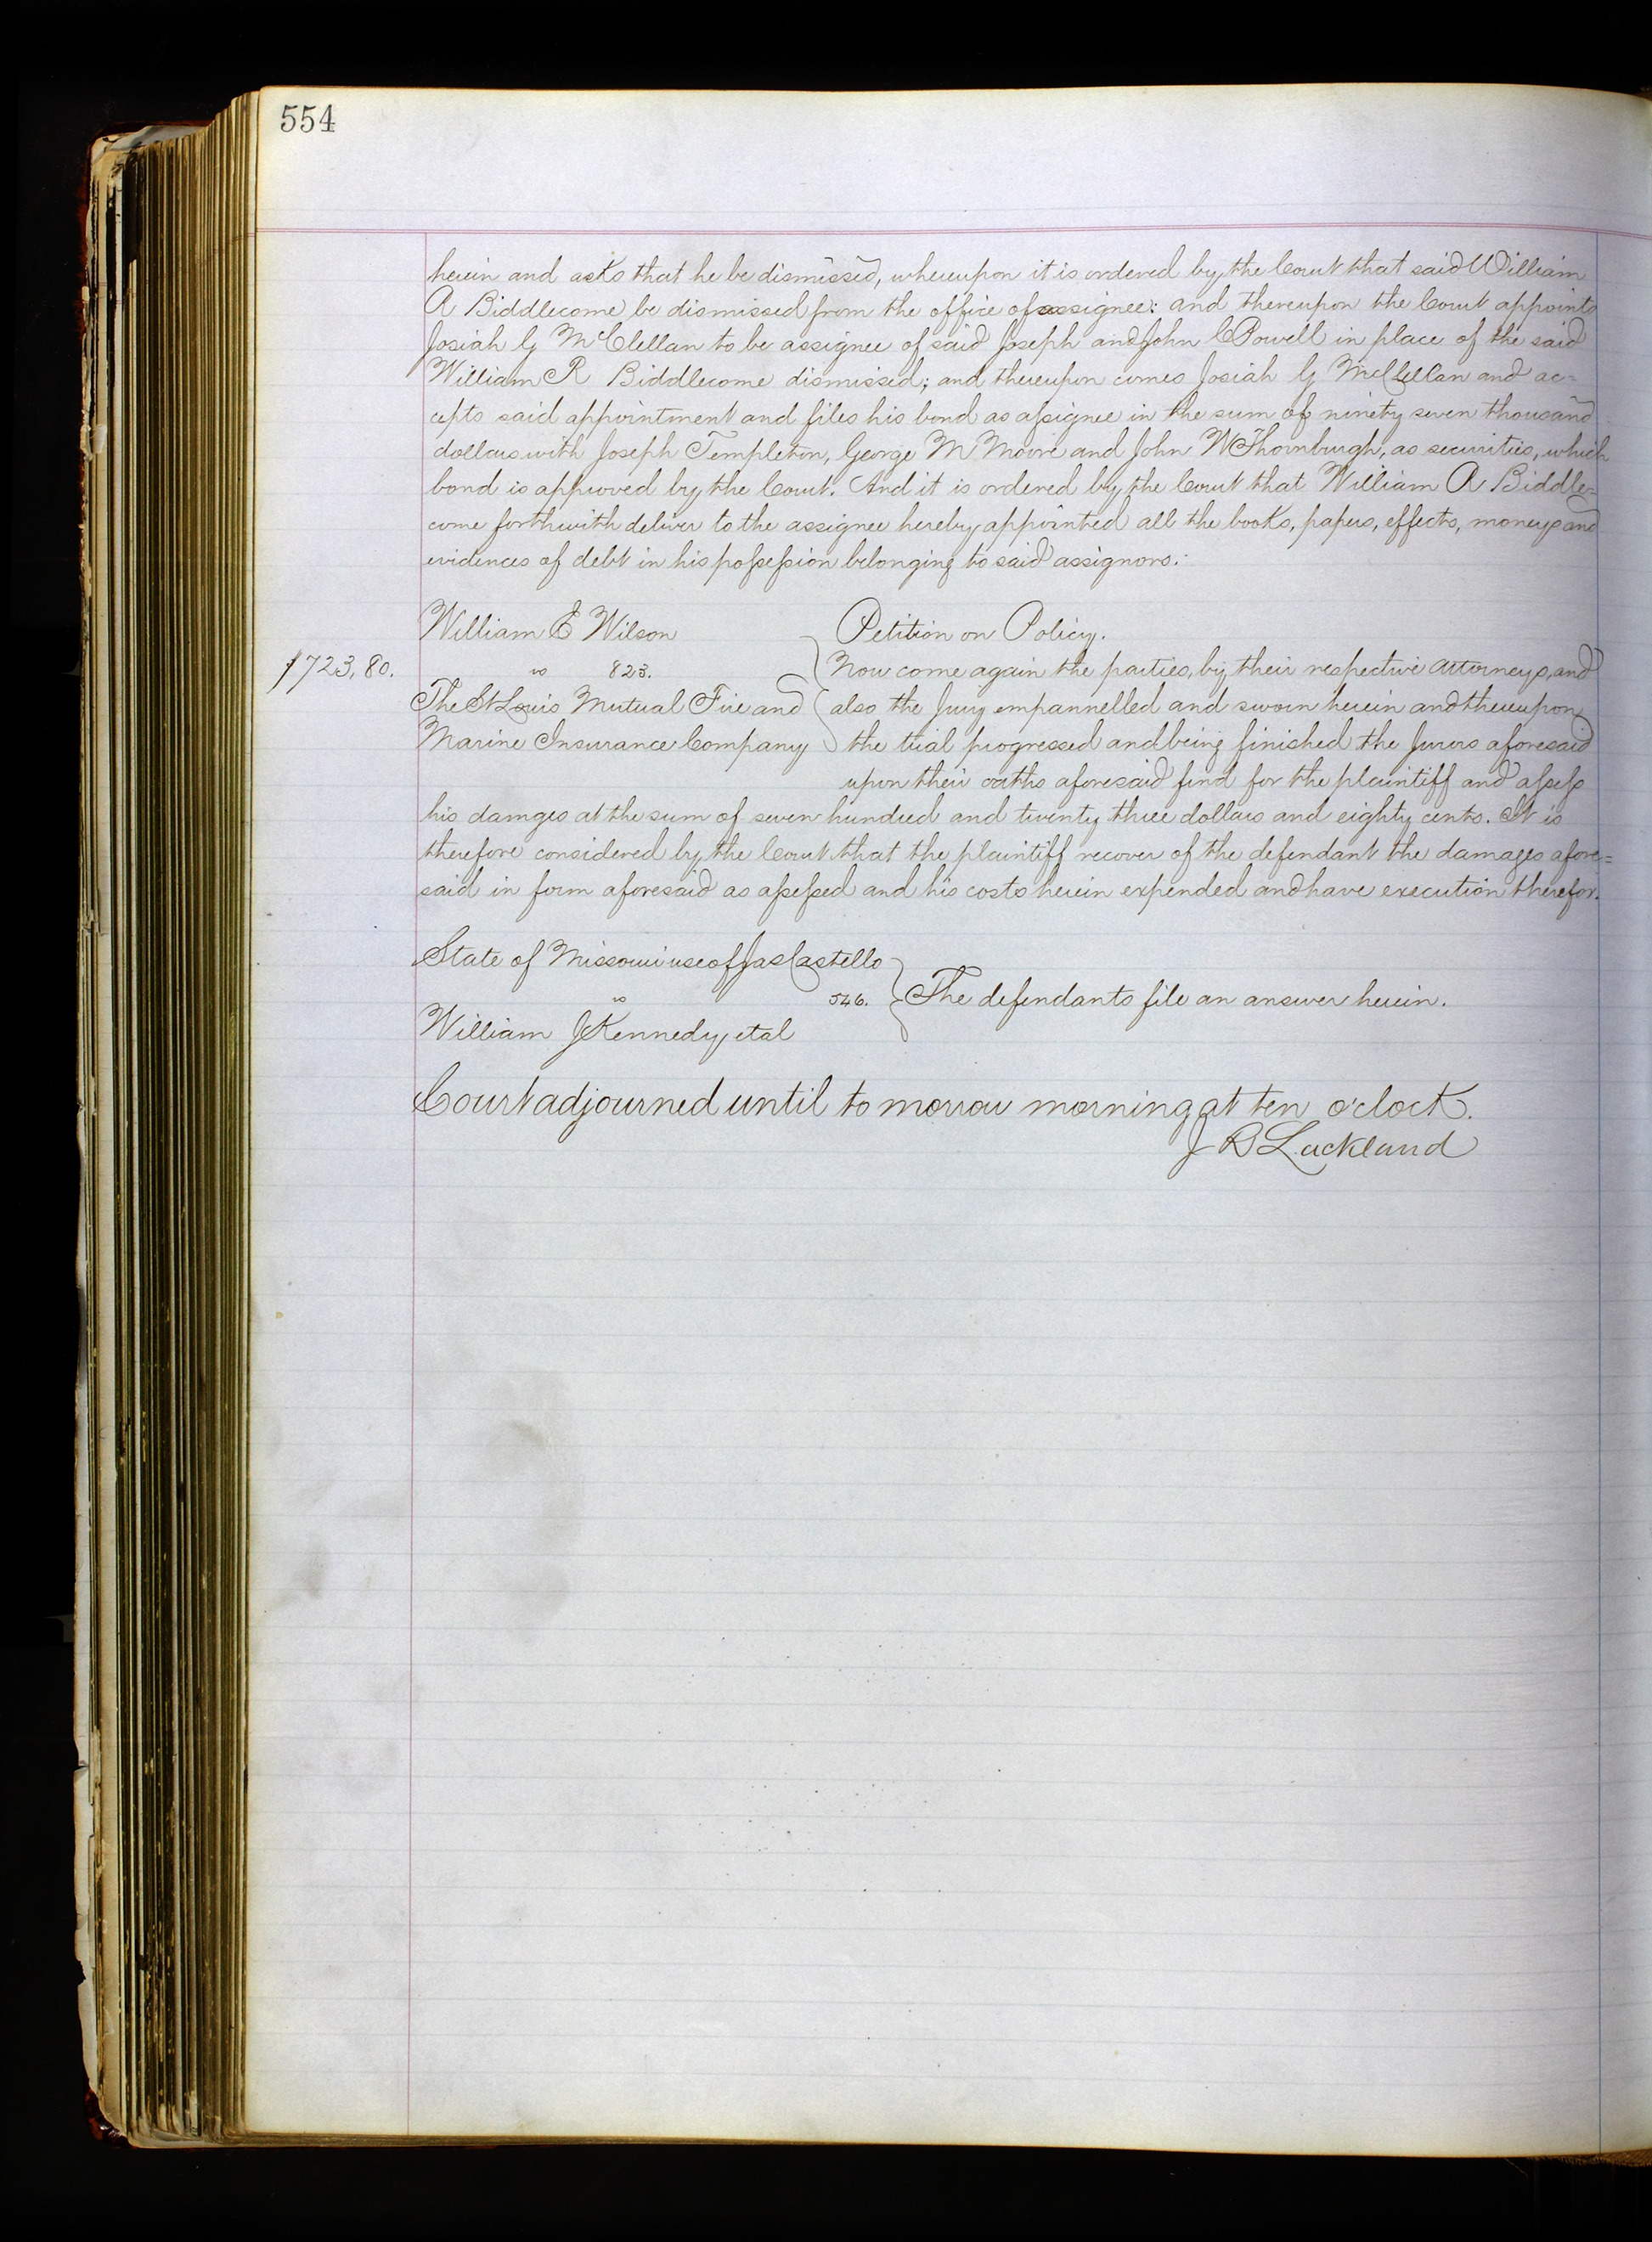 554
herein and asks that he be dismissed, whereupon it is ordered by the Court that said William
A Biddlecome be dismissed from the office of assignee: and thereupon the Court appoints
Josiah G McClellan to be assignee of said Joseph and John C Powell in place of the said
William R Biddlecome dismissed; and thereupon comes Josiah G McClellan and ac-
cepts said appointment and files his bond as assignee in the sum of ninety seven thousand
dollars with Joseph Templeton, George M Moore and John W Thornburgh, as securities, which
bond is approved by the Court. And it is ordered by the Court that William A Biddle=
come forthwith deliver to the assignee hereby appointed all the books, papers, effects, moneys and
evidences of debt in his possession belonging to said assignors.
William E Wilson Petition on Policy.
1723,80. vs 823. Now come again the parties, by their respective attorneys, and
The St Louis Mutual Fire and also the Jury empannelled and sworn herein and thereupon
Marine Insurance Company the trial progressed and being finished the Jurors aforesaid
upon their oaths aforesaid find for the plaintiff and assess
his damges at the sum of seven hundred and twenty three dollars and eighty cents. It is
therefore considered by the Court that the plaintiff recover of the defendant the damages afore=
said in form aforesaid as assessed and his costs herein expended and have execution therefor.
State of Missouri use of Jas Castello
vs 546. The defendants file an answer herein.
William J Kennedy, et al
Court adjourned until to morrow morning at ten o'clock.
J R Lackland